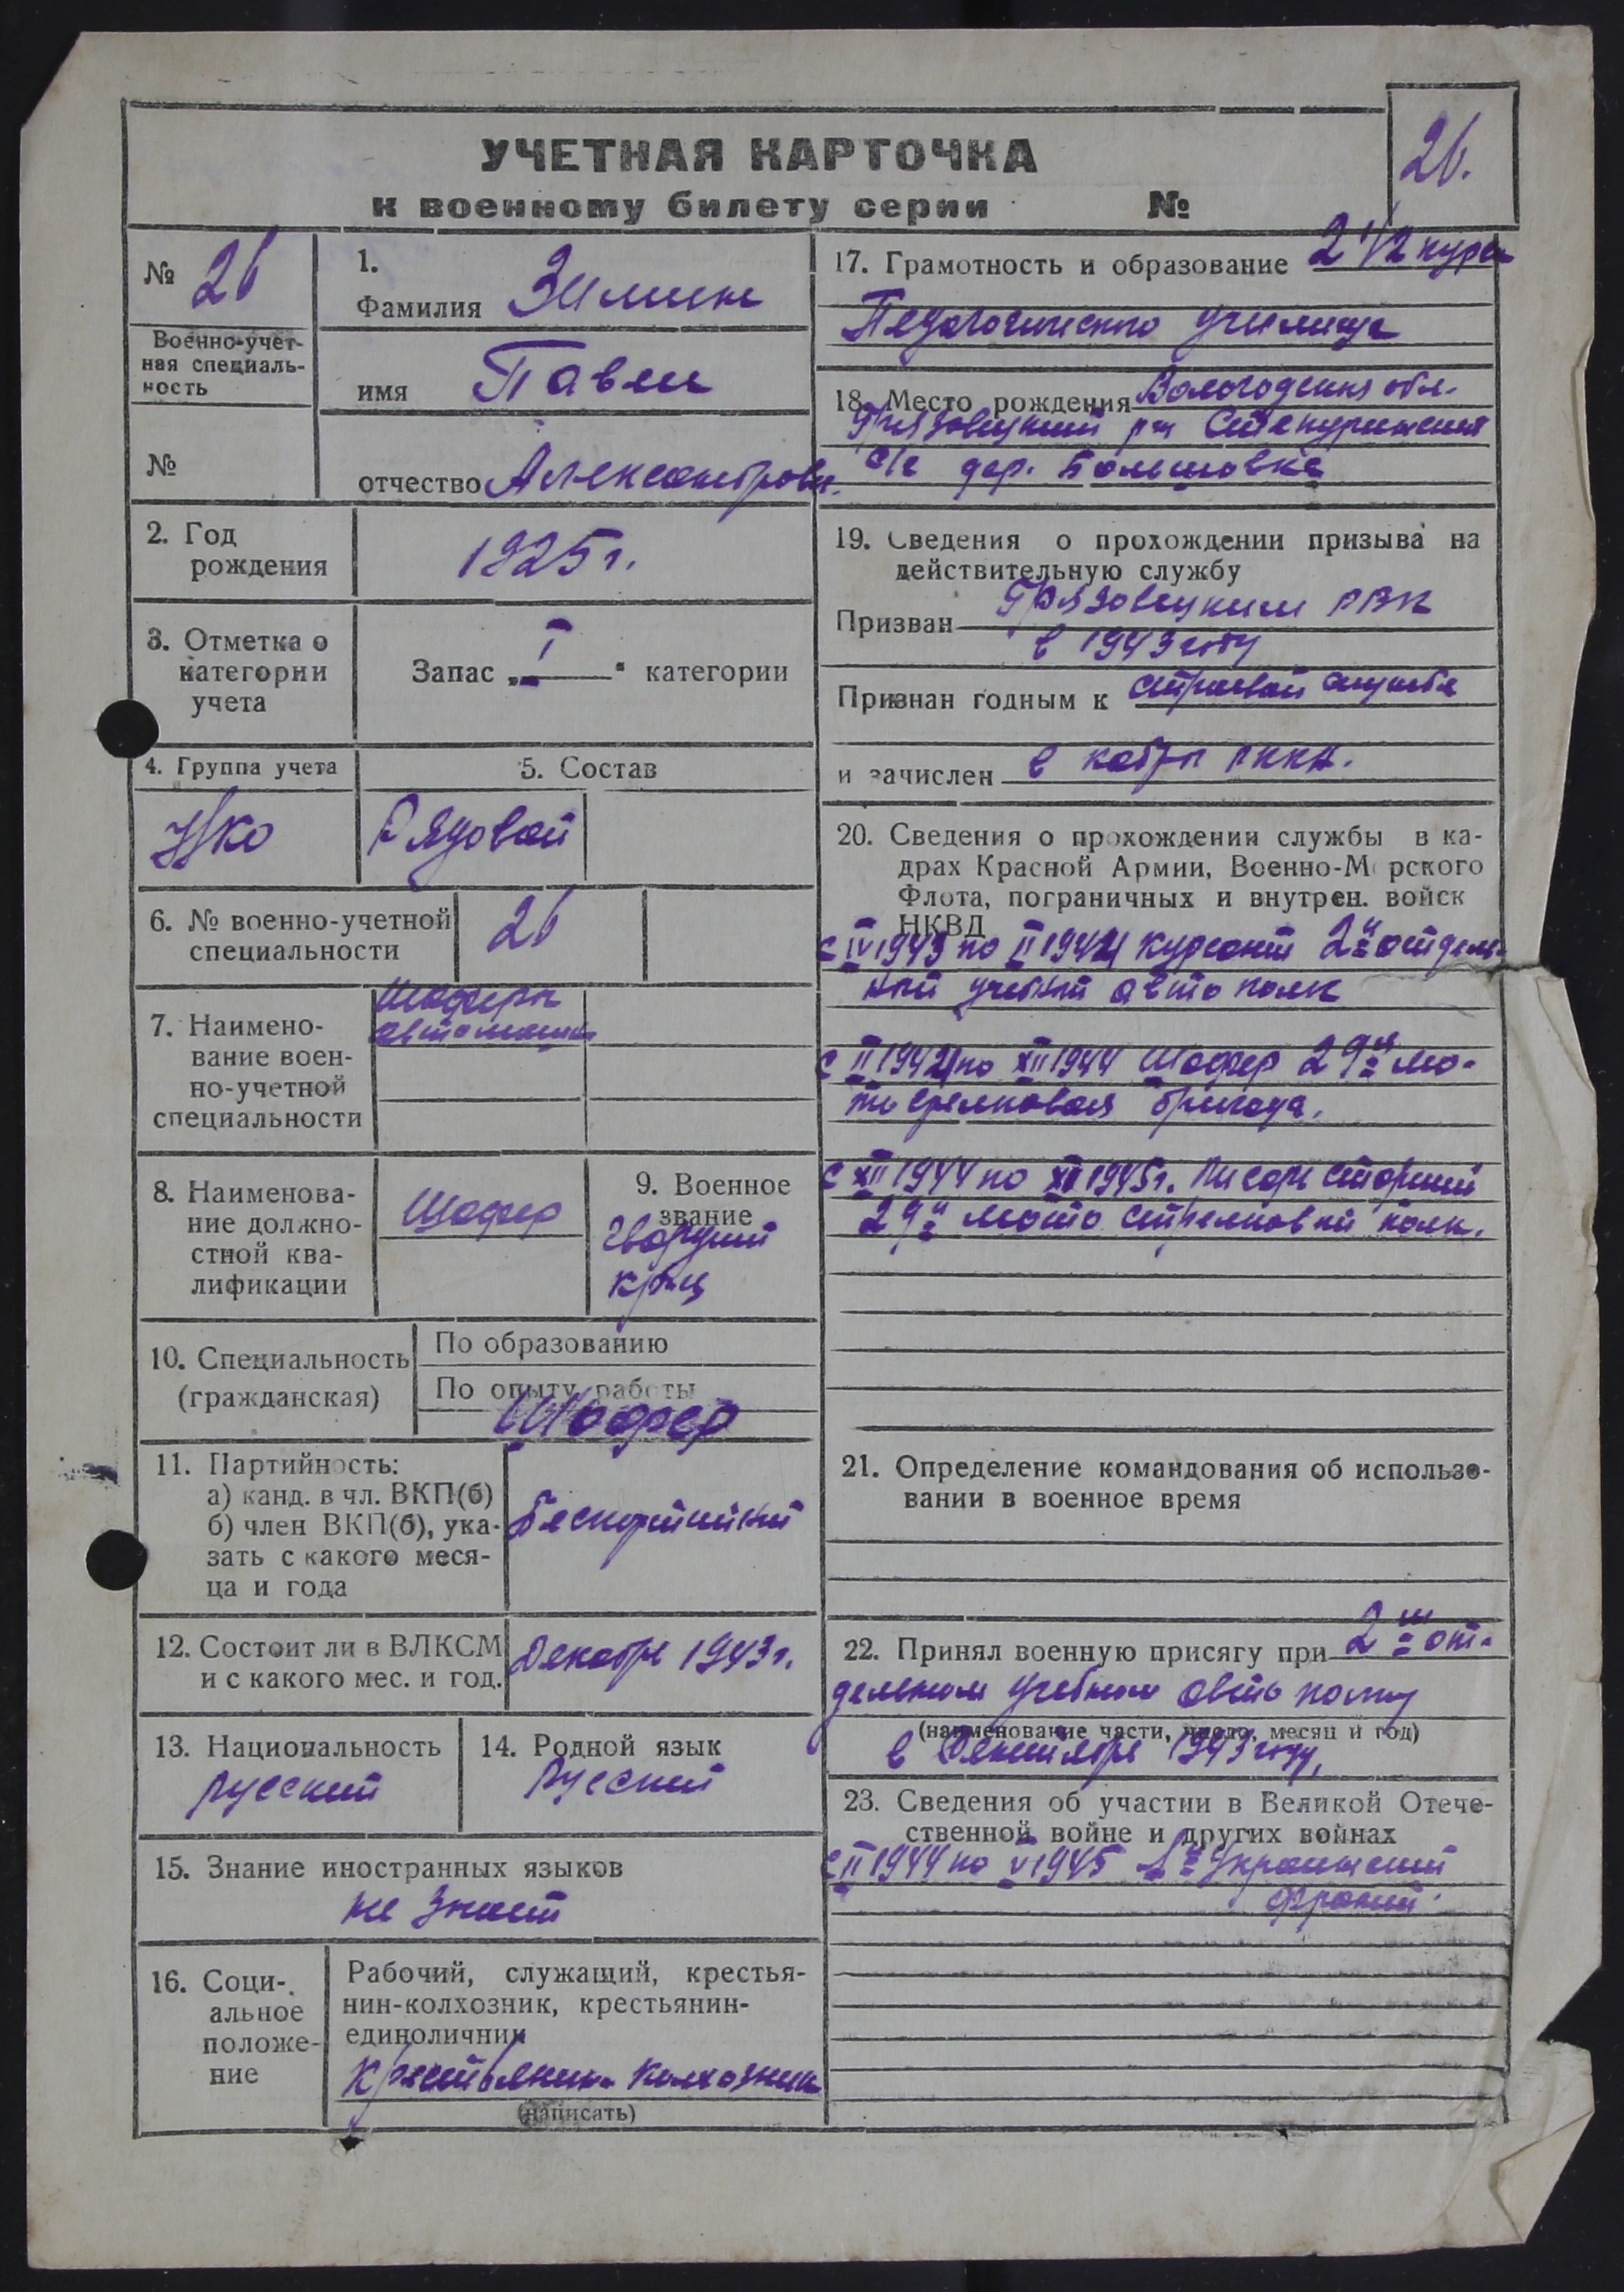 УЧЕТНАЯ КАРТОЧКА
к военному билету серии №
26.
№ 26
Военно-учет-
ная специаль-
ность
№
1.
Фамилия Зимин
имя Павел
отчество Александрови.
2. Год
рождения
1925 г.
3. Отметка о
категории
учета
Запас „ I “ категории
4. Группа учета
5. Состав
Рядовой
6. № военно-учетной
специальности
26
7. Наимено-
вание воен-
но-учетной
специальности
Шоферы
автомашин
8. Наименова-
ние должно-
стной ква-
лификации
Шофер
9. Военное
звание
Гвардии
кр-ц
10. Специальность
(гражданская)
По образованию
По опыту работы
Шофер
11. Партийность:
а) канд. в чл. ВКП(б)
б) член ВКП(б), ука-
зать с какого меся-
ца и года
Беспартийный
12. Состоит ли в ВЛКСМ
и с какого мес. и год.
Декабрь 1943 г.
13. Национальность
Русский
14. Родной язык
Русский
15. Знание иностранных языков
не знает
16. Соци-
альное
положе-
ние
Рабочий, служащий, крестья-
нин-колхозник, крестьянин-
единоличник
Крестьянин колхозник
(написать)
17. Грамотность и образование 2 1/2 курса
Педагогического училища
18. Место рождения Вологодская обл.
Грязовецкий р-н
с/с дер. Большовка
19. Сведения о прохождении призыва на
действительную службу
Призван Грязовецким РВК
в 1943 году
Признан годным к строевой службе
и зачислен в кадры РККА.
20. Сведения о прохождении службы в ка-
драх Красной Армии, Военно-Морского
Флота, пограничных и внутрен. войск
НКВД
с IV 1943 по II 1944 курсант 2й отдель-
ный учебный авто полк
с II 1944 по XII 1944 Шофер 29й мо-
то стрелковая бригада.
с XII 1944 по 1945 г. Писарь старший
29й мото стрелковый полк.
21. Определение командования об использо-
вании в военное время
22. Принял военную присягу при 2 м от-
дельном учебном авто полку
(наименование части, число, месяц и год)
в 1943 году.
23. Сведения об участии в Великой Отече-
ственной войне и других войнах
с II 1944 по V 1945 1й Украинский
фронт.